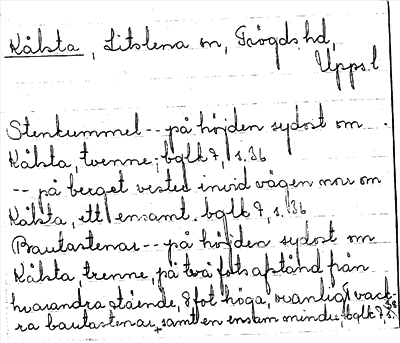 Kålsta, Litslena sn, Trögds hd,
Upps. l
Stenkummel -- på höjden sydost om
Kålsta, tvenne; bglk 7, s. 36
-- på berget vester invid vägen norr om
Kålsta, ett ensamt. bglk 7, s. 36
Bautastenar -- på höjden sydost om
Kålsta, trenne, på två fots afstånd från
hvarandra stående, 8 fot höga, ovanligt vack-
ra bautastenar, samt en ensam mindre; bglk 7, s. 36